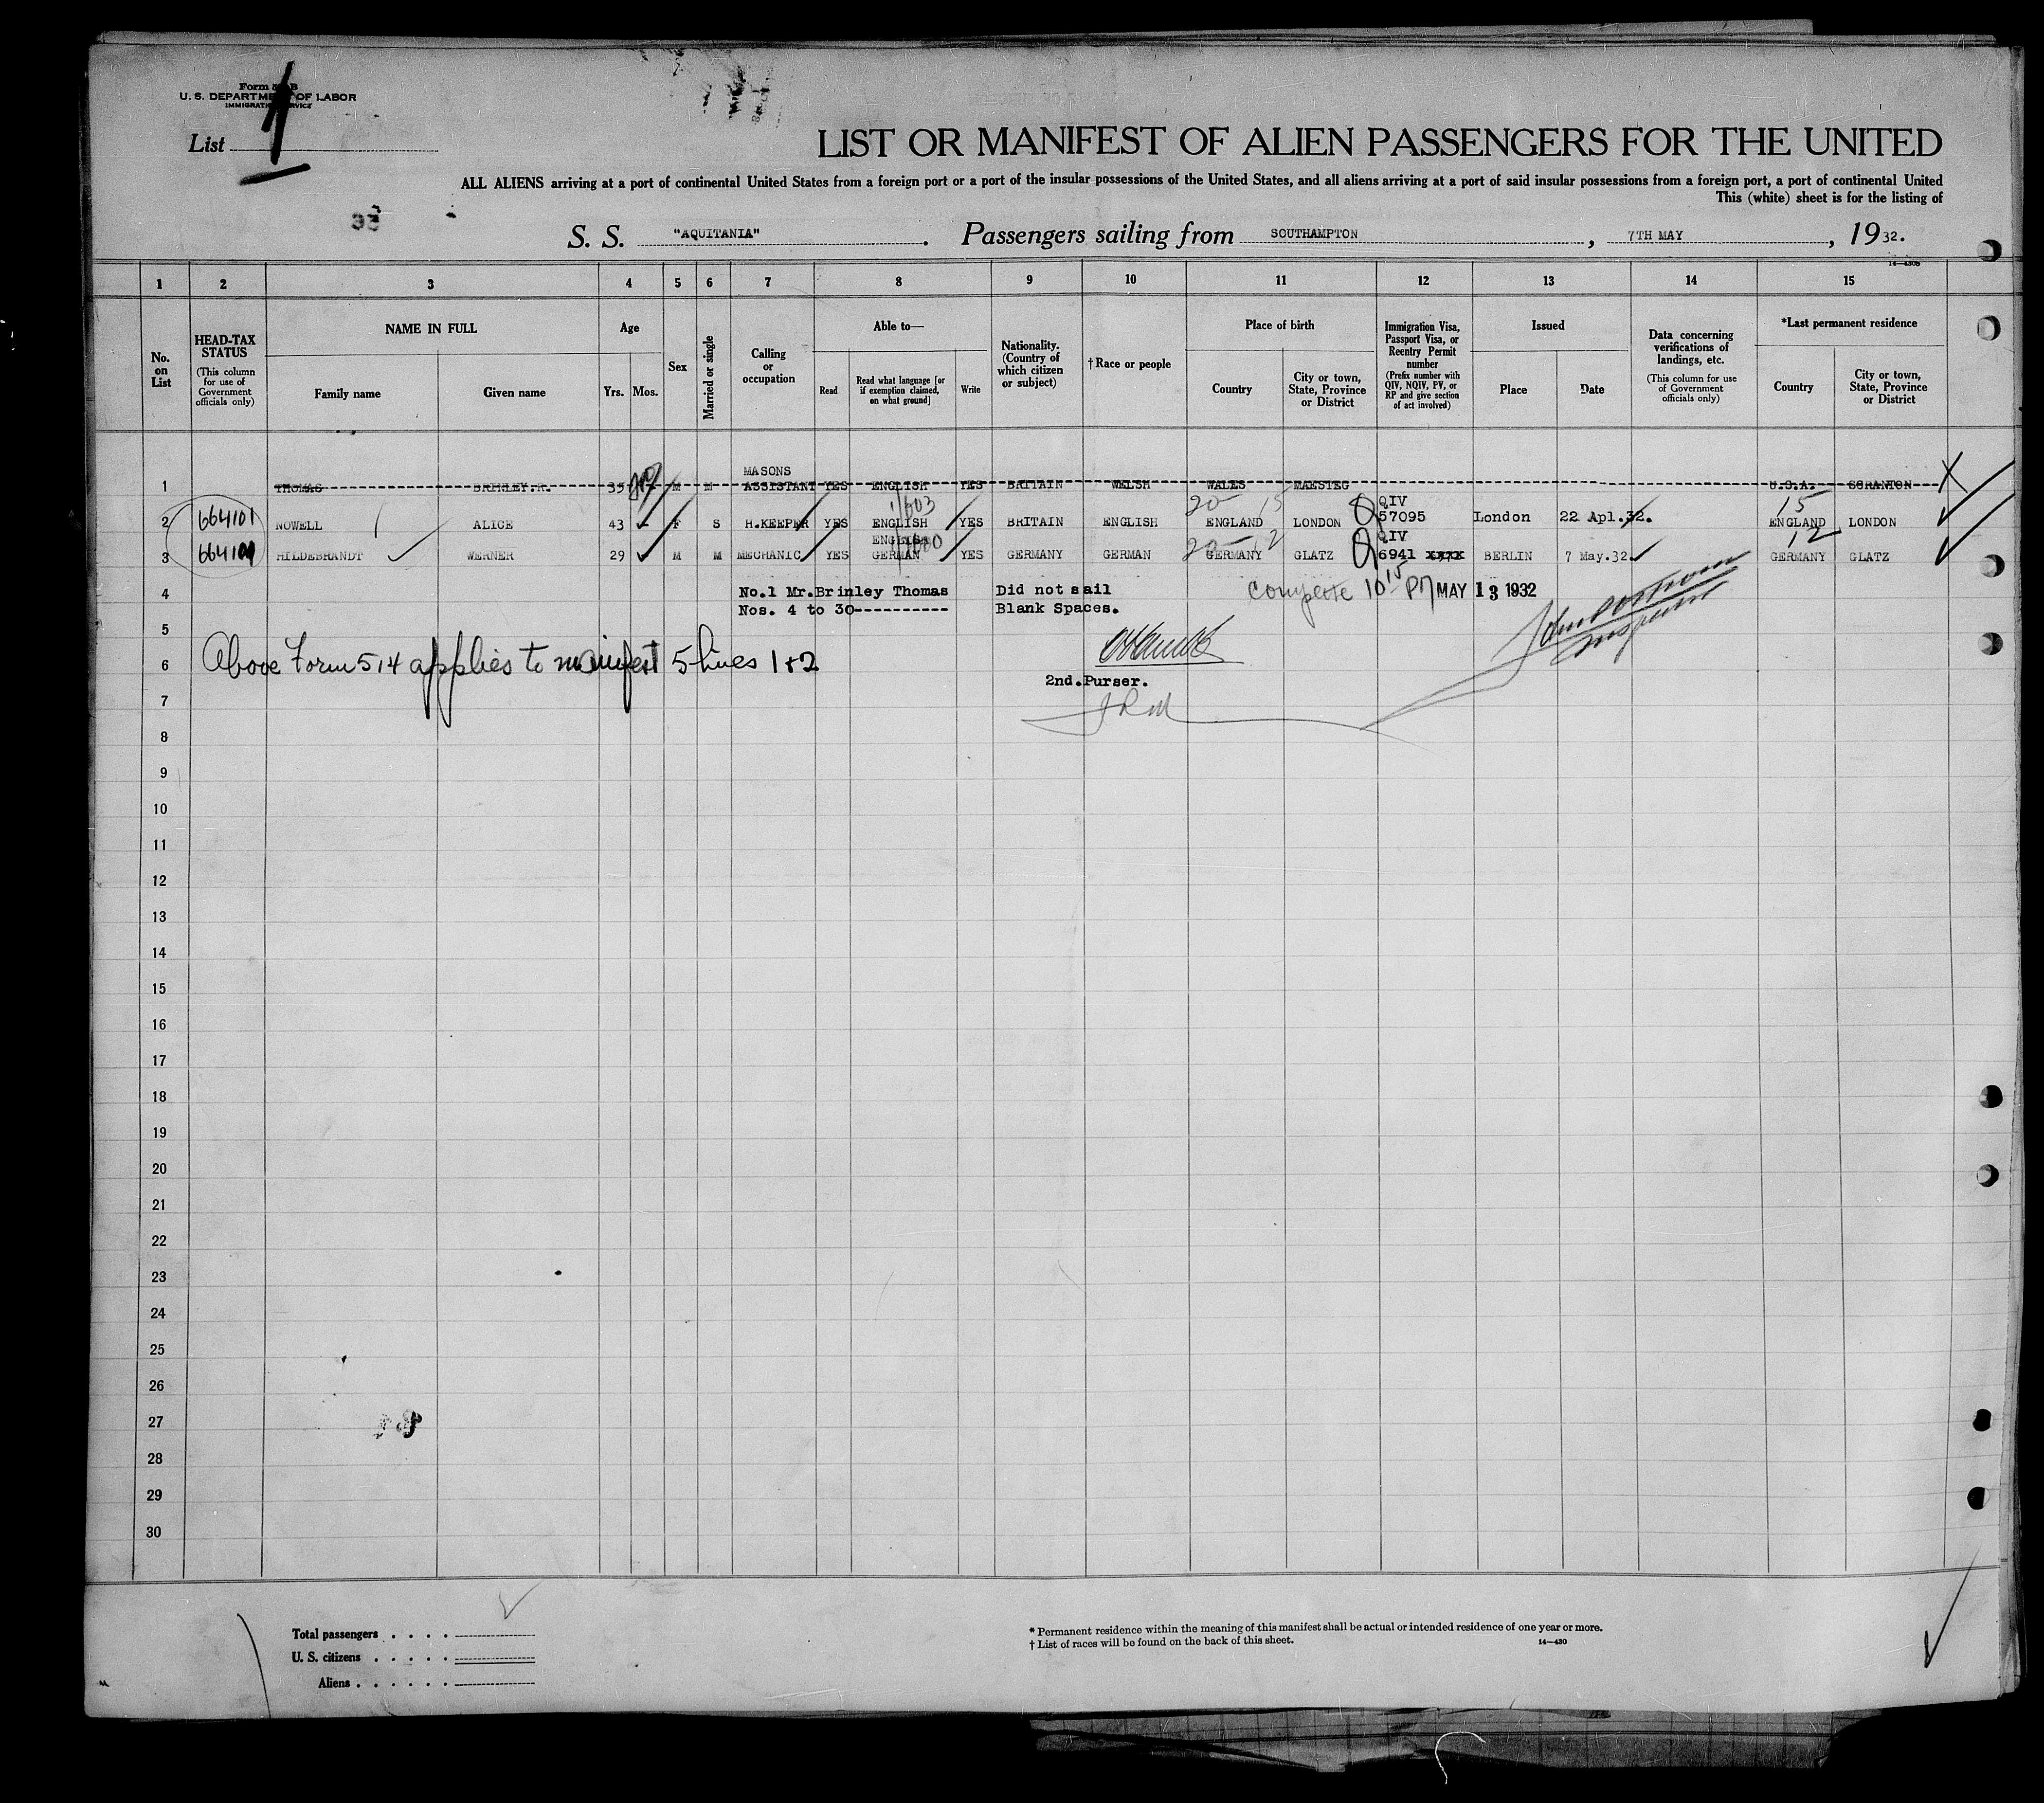 Form 500 B
U. S. DEPARTMENT OF LABOR
IMMIGRATION SERVICE
List 1
LIST OR MANIFEST OF ALIEN PASSENGERS FOR THE UNITED
ALL ALIENS arriving at a port of continental United States from a foreign port or a port of the insular possessions of the United States, and all aliens arriving at a port of said insular possessions from a foreign port, a port of continental United
This (white) sheet is for the listing of
S. S. "AQUITANIA". Passengers sailing from SOUTHAMPTON, 7TH MAY, 1932.
1 2 3 4 5 6 7 8 9 10 11 12 13 14 15
No. on List
HEAD-TAX STATUS (This column for use of Government officials only)
NAME IN FULL Family name Given name
Age Yrs. Mos.
Sex
Married or single
Calling or occupation
Able to— Read Read what language [or if exemption claimed, on what ground] Write
Nationality. (Country of which citizen or subject)
†Race or people
Place of birth Country City or town, State, Province or District
Immigration Visa, Passport Visa, or Reentry Permit number (Prefix number with QIV, NQIV, PV, or RP and give section of act involved)
Issued Place Date
Data concerning verifications of landings, etc. (This column for use of Government officials only)
*Last permanent residence Country City or town, State, Province or District
MASONS
1 THOMAS BRINLEY.R. 35 M M ASSISTANT YES ENGLISH YES BRITAIN WELSH WALES MAESTEG U.S.A. SCRANTON X
1/603 20 15 QIV 15
2 664101 NOWELL ALICE 43 F S H.KEEPER YES ENGLISH YES BRITAIN ENGLISH ENGLAND LONDON 57095 London 22 Apl.32. ENGLAND LONDON
ENGLISH 20 12 QIV 12
3 HILDEBRANDT WERNER 29 M M MECHANIC YES GERMAN YES GERMANY GERMAN GERMANY GLATZ 6941 BERLIN 7 May.32 GERMANY GLATZ
4 No.1 Mr.Brinley Thomas Did not sail 10 15 PM MAY 13 1932
Nos. 4 to 30---------- Blank Spaces.
5
Inspector
6 Above Form 514 applies to manifest 5 lines 1 & 2
2nd.Purser.
7
8
9
10
11
12
13
14
15
16
17
18
19
20
21
22
23
24
25
26
27
28
29
30
Total passengers . . . .
U. S. citizens . . . . .
Aliens . . . . . .
* Permanent residence within the meaning of this manifest shall be actual or intended residence of one year or more.
† List of races will be found on the back of this sheet. 14—430